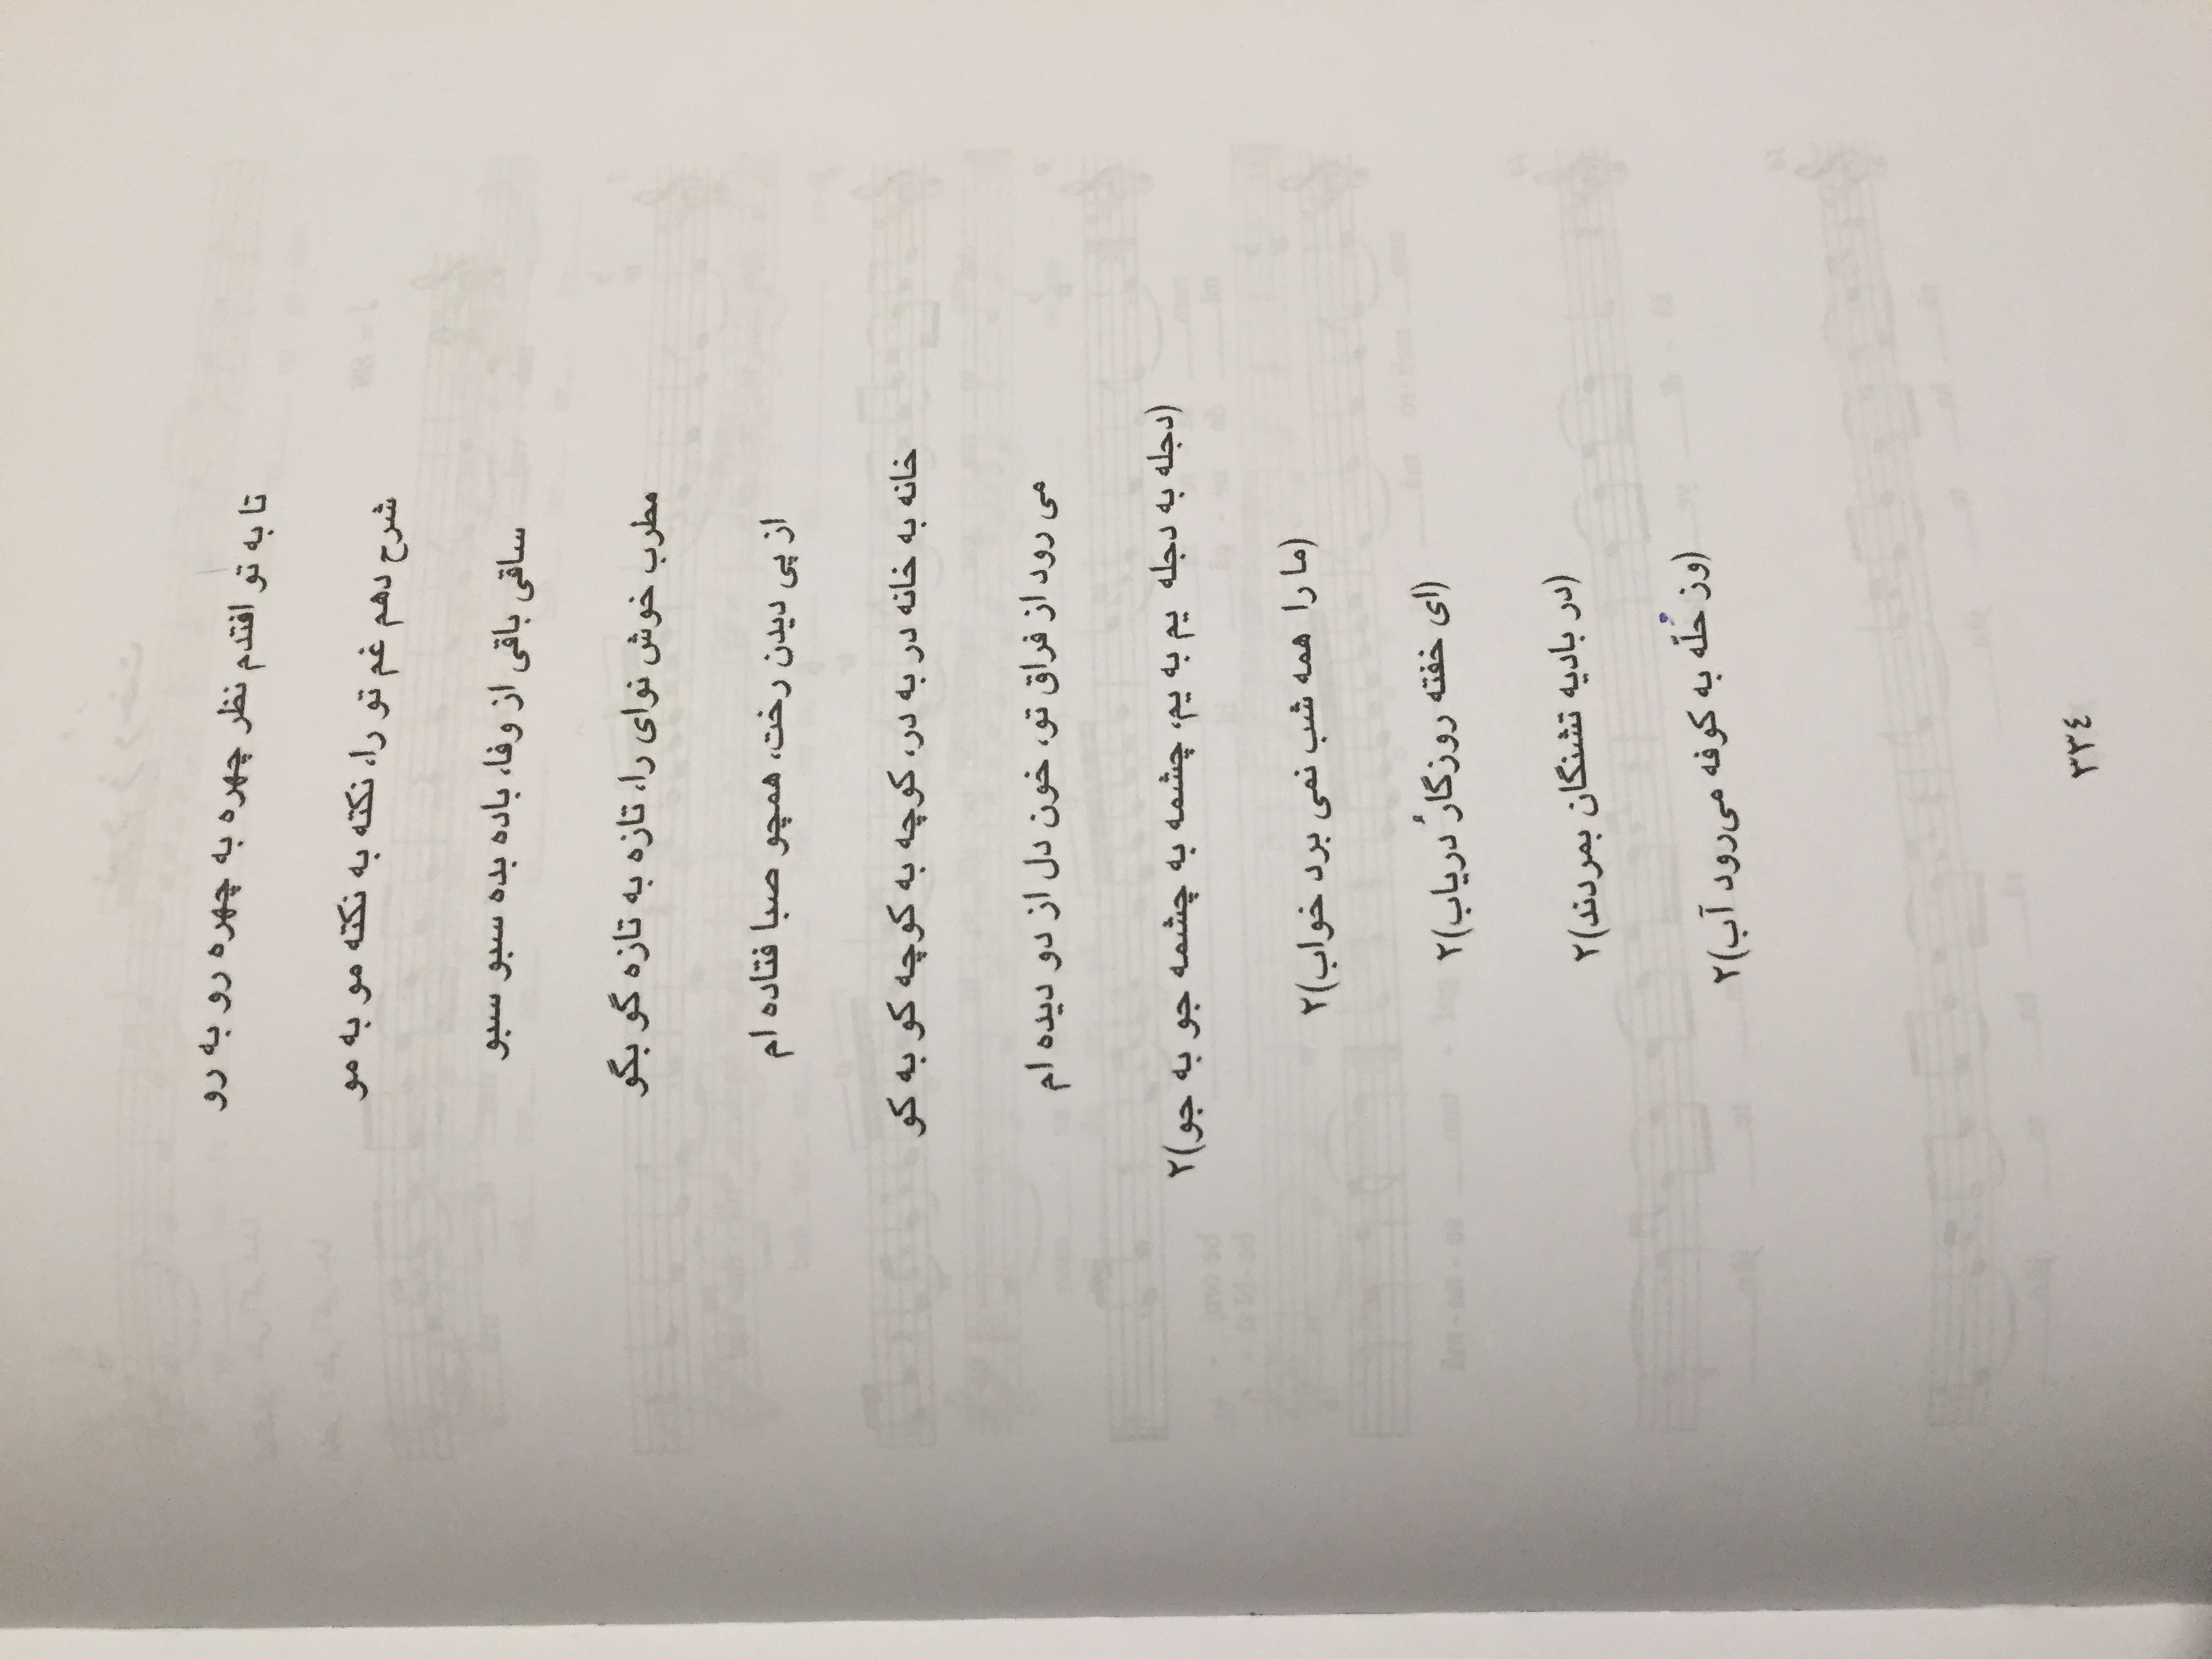 تا به تو افتدم نظر چهره به چهره رو به رو
شرح دهم غم تو را، نکته به نکته مو به مو
ساقی باقی از وفا، باده بده سبو سبو
مطرب خوش نوای را، تازه به تازه گو بگو
از پی دیدن رخت، همچو صبا فتاده ام
خانه به خانه در به در، کوچه به کوچه کو به کو
می رود از فراق تو، خون دل از دو دیده ام
(دجله به دجله یم به یم، چشمه به چشمه جو به جو)۲
(ما را همه شب نمی برد خواب)۲
(ای خفته روزگارُ دریاب)۲
(در بادیه تشنگان بمردند)۲
(وز حُلّه به کوفه می‌رود آب)۲
٣٣٤